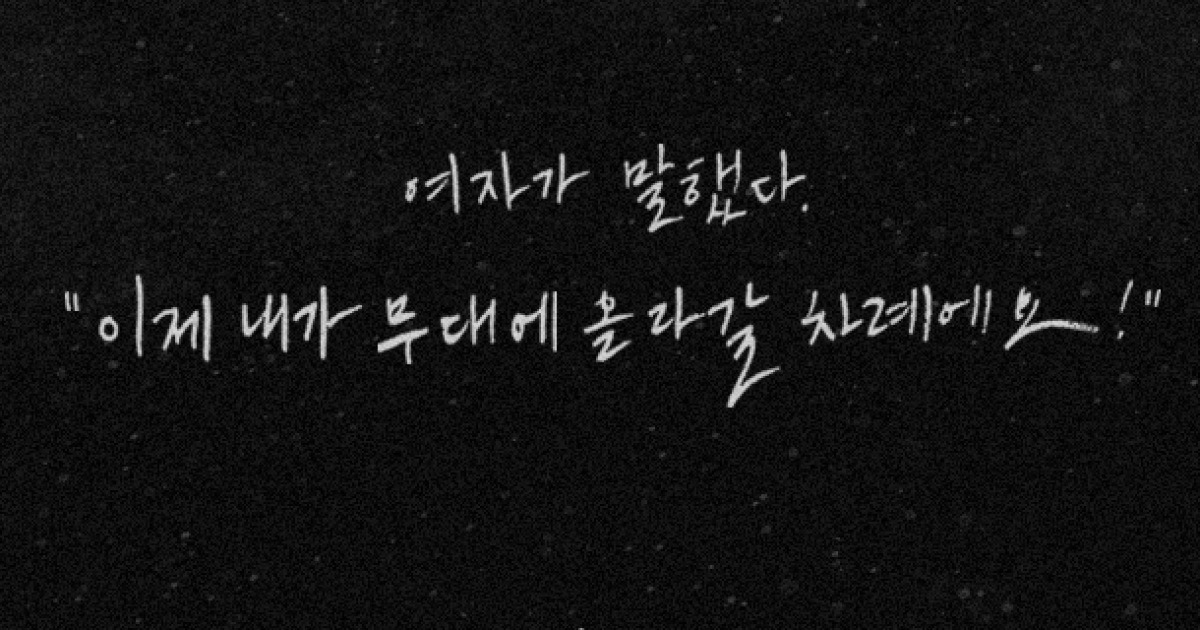 여자가 말했다.
"이제 내가 무대에 올라갈 차례에요!"